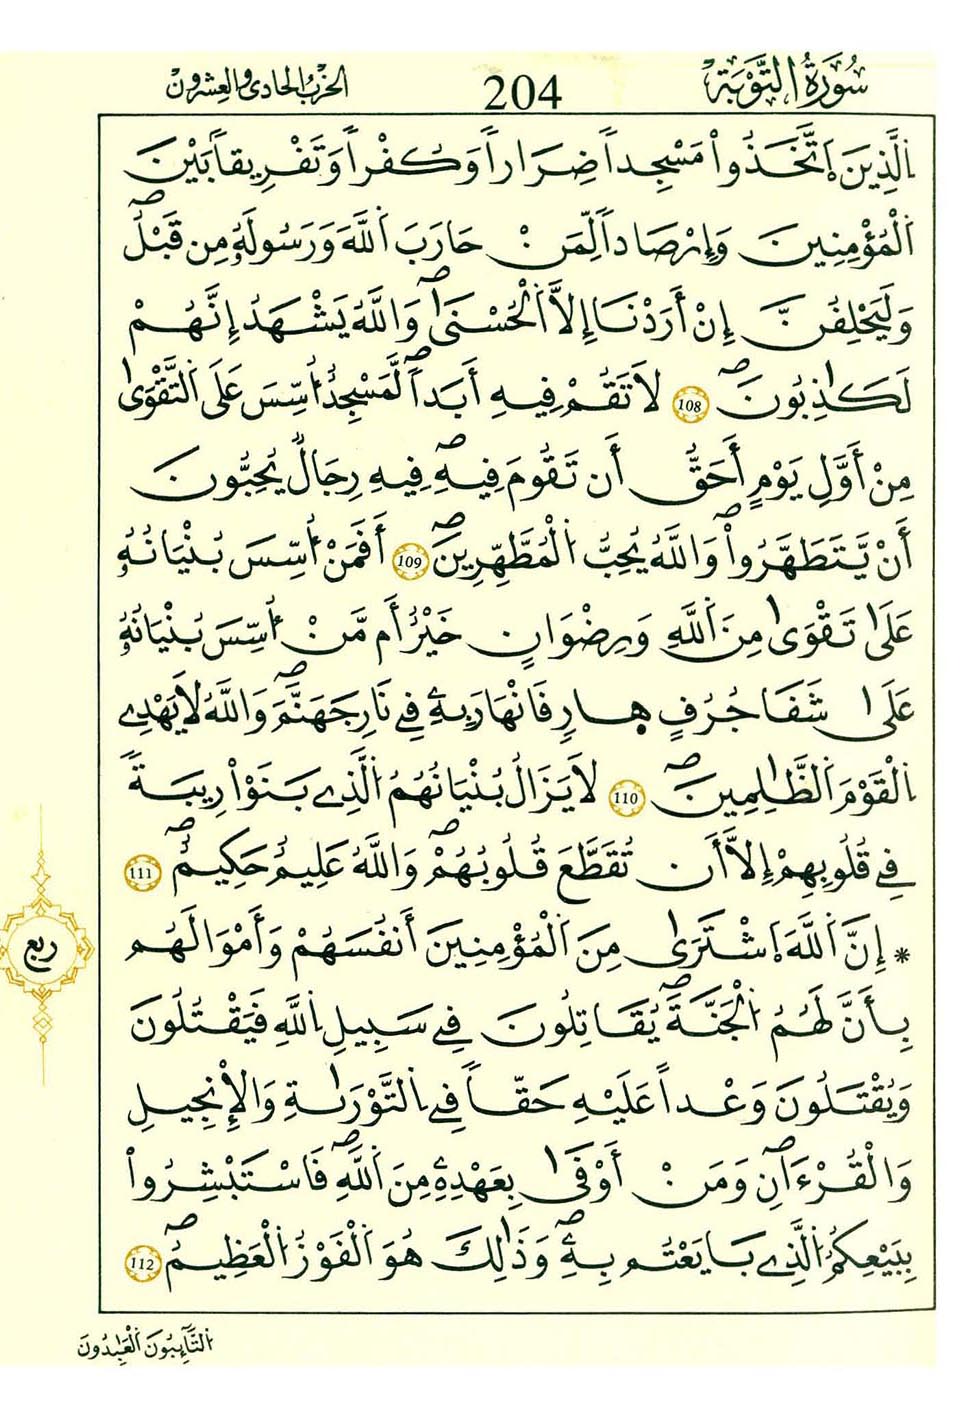 سُورَةُ التَّوْبَة 204 الحِزْبُ الحَادِي وَالعِشْرُون
اَ۬لذِينَ اَ۪تَّخَذُواْ مَسْجِداٗ ضِرَاراٗ وَكُفْراٗ وَتَفْرِيقاَۢ بَيْنَ
اَ۬لْمُؤْمِنِينَ وَإِرْصَاداٗ لِّمَنْ حَارَبَ اَ۬للَّهَ وَرَسُولَهُۥ مِن قَبْلُۖ
وَلَيَحْلِفُنَّ إِنْ أَرَدْنَا إِلاَّ اَ۬لْحُسْنَىٰۖ وَاللَّهُ يَشْهَدُ إِنَّهُمْ
لَكَٰذِبُونَۖ 108 لاَ تَقُمْ فِيهِ أَبَداٗۖ لَّمَسْجِدٌ ا۟سِّسَ عَلَى اَ۬لتَّقْوَىٰ
مِنْ أَوَّلِ يَوْمٍ أَحَقُّ أَن تَقُومَ فِيهِۖ فِيهِ رِجَالٞ يُحِبُّونَ
أَنْ يَّتَطَهَّرُواْۖ وَاللَّهُ يُحِبُّ اُ۬لْمُطَّهِّرِينَۖ 109 أَفَمَنُ ا۟سِّسَ بُنْيَانُهُۥ
عَلَىٰ تَقْوَىٰ مِنَ اَ۬للَّهِ وَرِضْوَانٍ خَيْرٌ أَم مَّنُ ا۟سِّسَ بُنْيَانُهُۥ
عَلَىٰ شَفَا جُرُفٍ هِارٖ فَانْهَارَ بِهِۦ فِے نَارِ جَهَنَّمَۖ وَاللَّهُ لاَ يَهْدِے
اِ۬لْقَوْمَ اَ۬لظَّٰلِمِينَۖ 110 لاَ يَزَالُ بُنْيَانُهُمُ اُ۬لذِے بَنَوْاْ رِيبَةٗ
فِے قُلُوبِهِمْ إِلاَّ أَن تُقَطَّعَ قُلُوبُهُمْۖ وَاللَّهُ عَلِيمٌ حَكِيمٌۖ 111
* إِنَّ اَ۬للَّهَ اَ۪شْتَر۪ىٰ مِنَ اَ۬لْمُؤْمِنِينَ أَنفُسَهُمْ وَأَمْوَالَهُم
بِأَنَّ لَهُمُ اُ۬لْجَنَّةَۖ يُقَاتِلُونَ فِے سَبِيلِ اِ۬للَّهِ فَيَقْتُلُونَ
وَيُقْتَلُونَ وَعْداً عَلَيْهِ حَقّاٗ فِے اِ۬لتَّوْر۪ىٰةِ وَالْإِنجِيلِ
وَالْقُرْءَانِۖ وَمَنْ أَوْفَىٰ بِعَهْدِهِۦ مِنَ اَ۬للَّهِۖ فَاسْتَبْشِرُواْ
بِبَيْعِكُمُ اُ۬لذِے بَايَعْتُم بِهِۦۖ وَذَٰلِكَ هُوَ اَ۬لْفَوْزُ اُ۬لْعَظِيمُۖ 112
ربع
اَ۬لتَّٰٓئِبُونَ اَ۬لْعَٰبِدُونَ